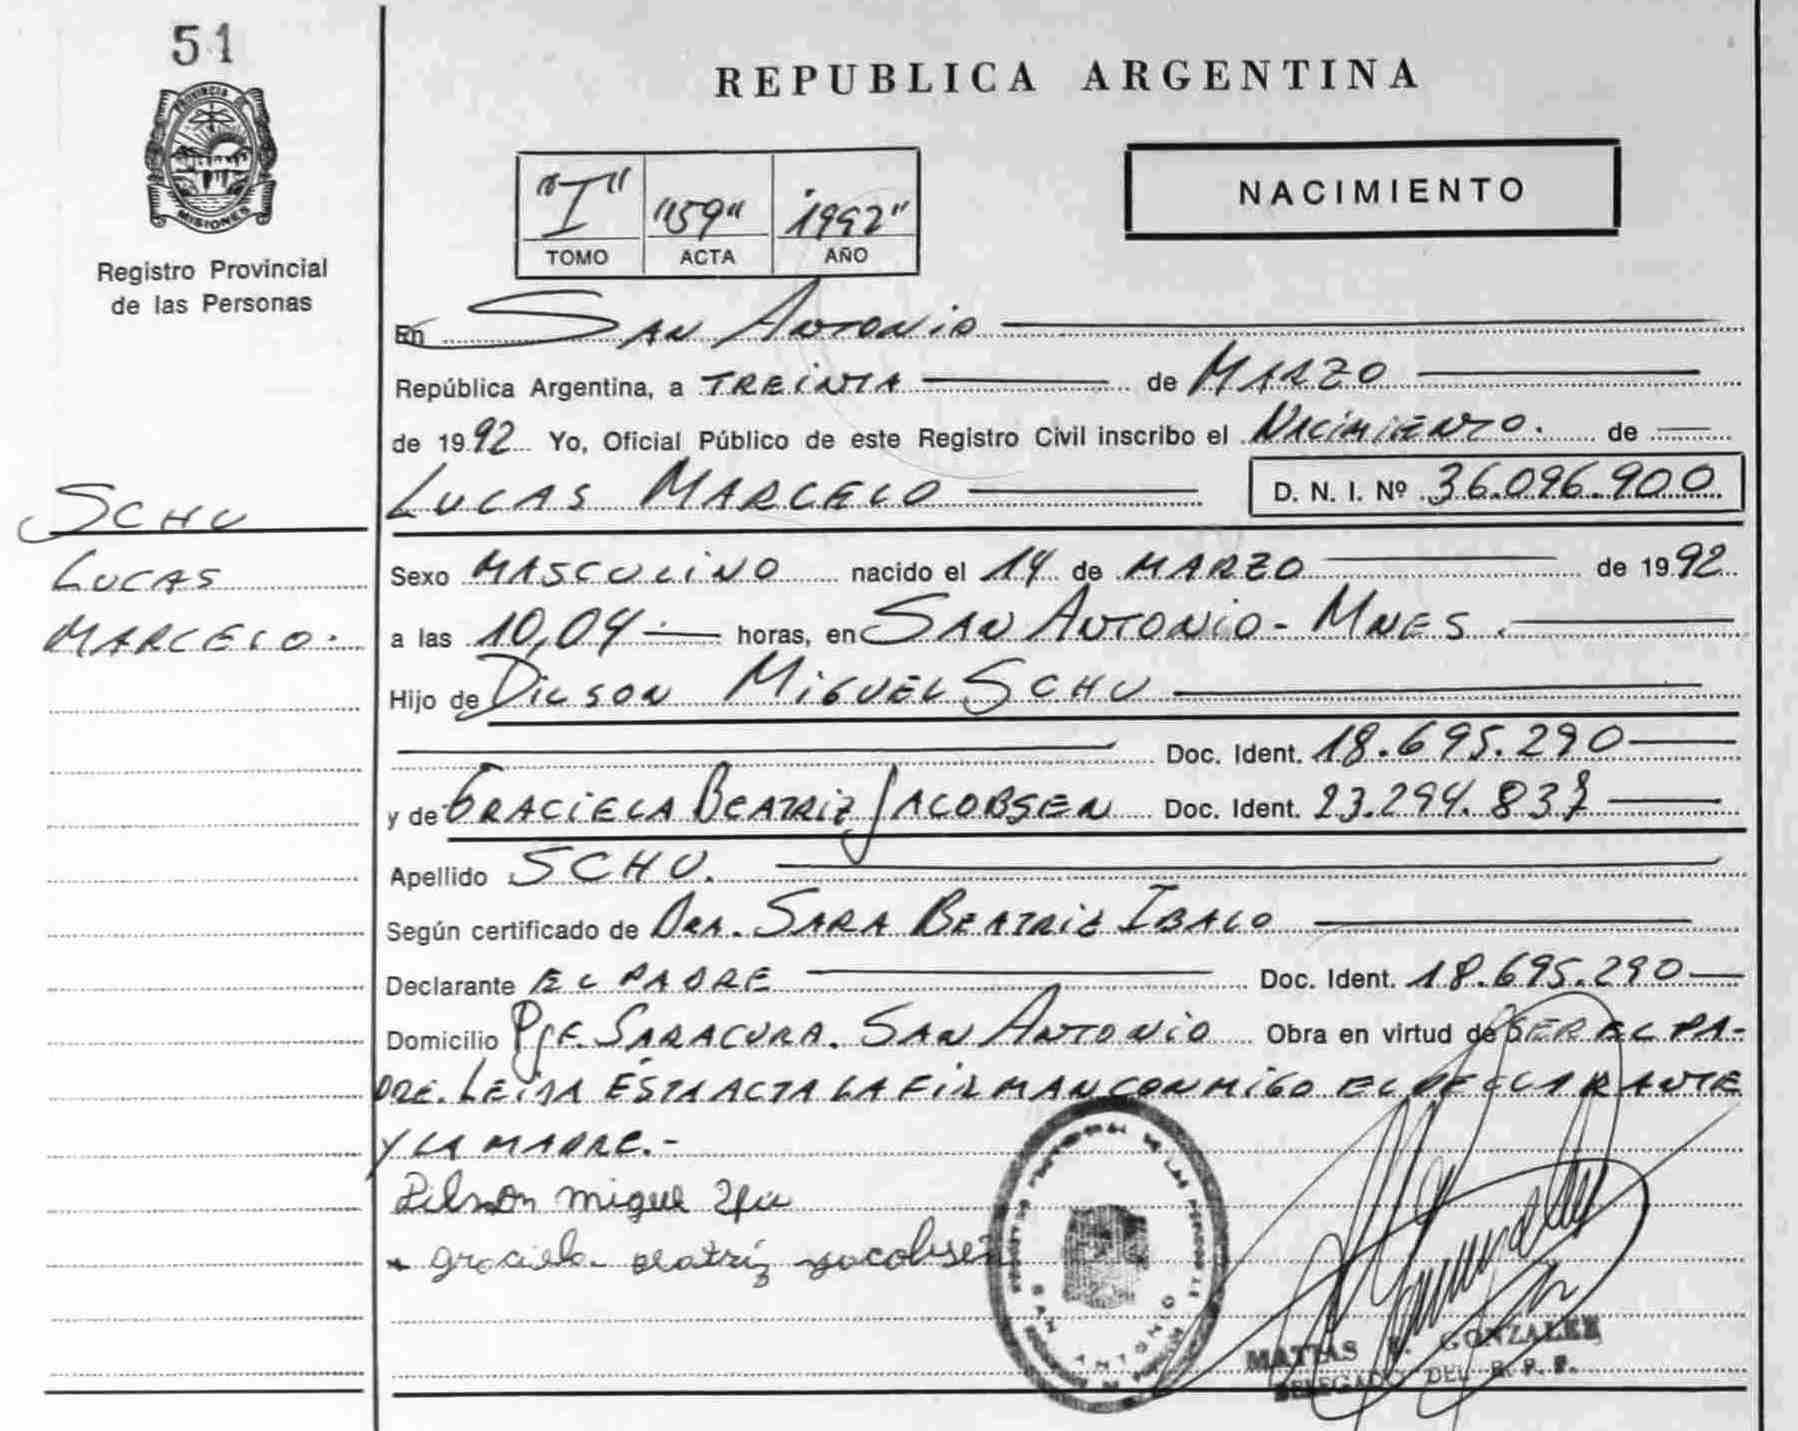 51
PROVINCIA DE
MISIONES
Registro Provincial
de las Personas
REPUBLICA ARGENTINA
"I" "59" "1992"
TOMO ACTA AÑO
NACIMIENTO
En SAN ANTONIO
República Argentina, a TREINTA de MARZO
de 1992 Yo, Oficial Público de este Registro Civil inscribo el NACIMIENTO. de
LUCAS MARCELO D. N. I. Nº 36.096.900
SCHU
LUCAS
MARCELO.
Sexo MASCULINO nacido el 14 de MARZO de 1992
a las 10,04 horas, en SAN ANTONIO - MNES.
Hijo de DILSON MIGUEL SCHU
Doc. Ident. 18.695.290
y de GRACIELA BEATRIZ JACOBSEN Doc. Ident. 23.294.837
Apellido SCHU.
Según certificado de DRA. SARA BEATRIZ IBALO
Declarante EL PADRE Doc. Ident. 18.695.290
Domicilio PJE. SARACURA. SAN ANTONIO Obra en virtud de SER EL PA-
DRE. LEIDA ESTA ACTA LA FIRMAN CONMIGO EL DECLARANTE
Y LA MADRE.-
Dilson miguel
graciela beatriz yacobsen
SAN ANTONIO
MATIAS GONZALEZ
DELEGADO DEL R. P. P.